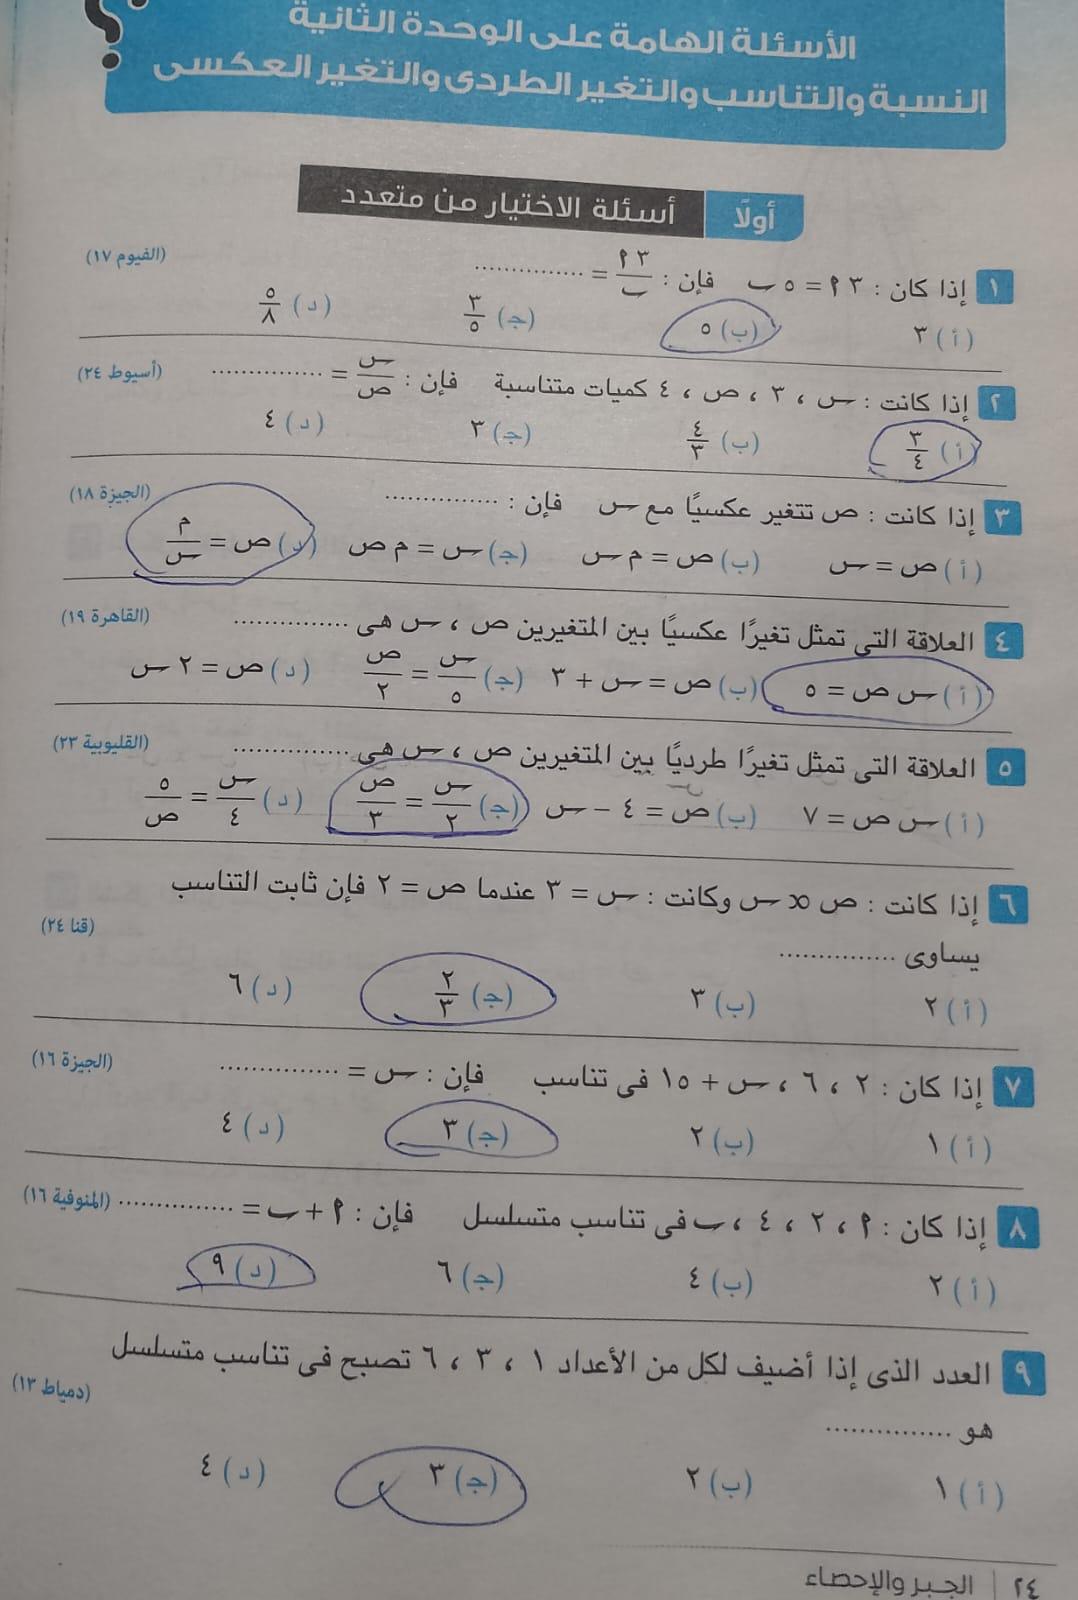 الأسئلة الهامة على الوحدة الثانية
النسبة والتناسب والتغير الطردى والتغير العكسى
أولًا أسئلة الاختيار من متعدد
١ إذا كان : ٣ ٢ = ٥ ب فإن : ٣ ٢ / ب = ............... (الفيوم ١٧)
(أ) ٣ (ب) ٥ (جـ) ٣/٥ (د) ٥/٨
٢ إذا كانت : س ، ٣ ، ص ، ٤ كميات متناسبة فإن : س/ص = ............... (أسيوط ٢٤)
(أ) ٣/٤ (ب) ٤/٣ (جـ) ٣ (د) ٤
٣ إذا كانت : ص تتغير عكسيًا مع س فإن : ............... (الجيزة ١٨)
(أ) ص = س (ب) ص = م س (جـ) س = م ص (د) ص = م/س
٤ العلاقة التى تمثل تغيرًا عكسيًا بين المتغيرين ص ، س هى ............... (القاهرة ١٩)
(أ) س ص = ٥ (ب) ص = س + ٣ (جـ) س/٥ = ص/٢ (د) ص = ٢ س
٥ العلاقة التى تمثل تغيرًا طرديًا بين المتغيرين ص ، س هى ............... (القليوبية ٢٣)
(أ) س ص = ٧ (ب) ص = ٤ - س (جـ) س/٢ = ص/٣ (د) س/٤ = ٥/ص
٦ إذا كانت : ص ∝ س وكانت : س = ٣ عندما ص = ٢ فإن ثابت التناسب
يساوى ............... (قنا ٢٤)
(أ) ٢ (ب) ٣ (جـ) ٢/٣ (د) ٦
٧ إذا كان : ٢ ، ٦ ، س + ١٥ فى تناسب فإن : س = ............... (الجيزة ١٦)
(أ) ١ (ب) ٢ (جـ) ٣ (د) ٤
٨ إذا كان : ٢ ، ٢ ، ٤ ، ب فى تناسب متسلسل فإن : ٢ + ب = ............... (المنوفية ١٦)
(أ) ٢ (ب) ٤ (جـ) ٦ (د) ٩
٩ العدد الذى إذا أضيف لكل من الأعداد ١ ، ٣ ، ٦ تصبح فى تناسب متسلسل
هو ............... (دمياط ١٣)
(أ) ١ (ب) ٢ (جـ) ٣ (د) ٤
٢٤ | الجبر والإحصاء